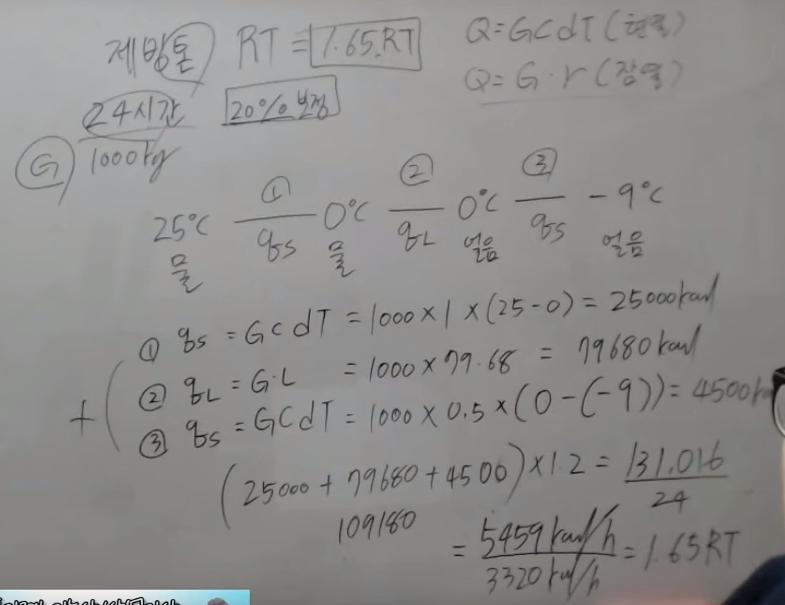 제빙톤 RT = 1.65.RT
Q=GCdT (현열)
Q=G·r (잠열)
24시간 20% 보정
G 1000kg
① ② ③
25℃ 0℃ 0℃ -9℃
qs qL qs
물 물 얼음 얼음
① qs = GCdT = 1000×1×(25-0) = 25000kcal
② qL = G·L = 1000×79.68 = 79680kcal
+ ③ qs = GCdT = 1000×0.5×(0-(-9)) = 4500
(25000+79680+4500)×1.2 = 131.016
24
109180
= 5459kcal/h = 1.65RT
3320kcal/h